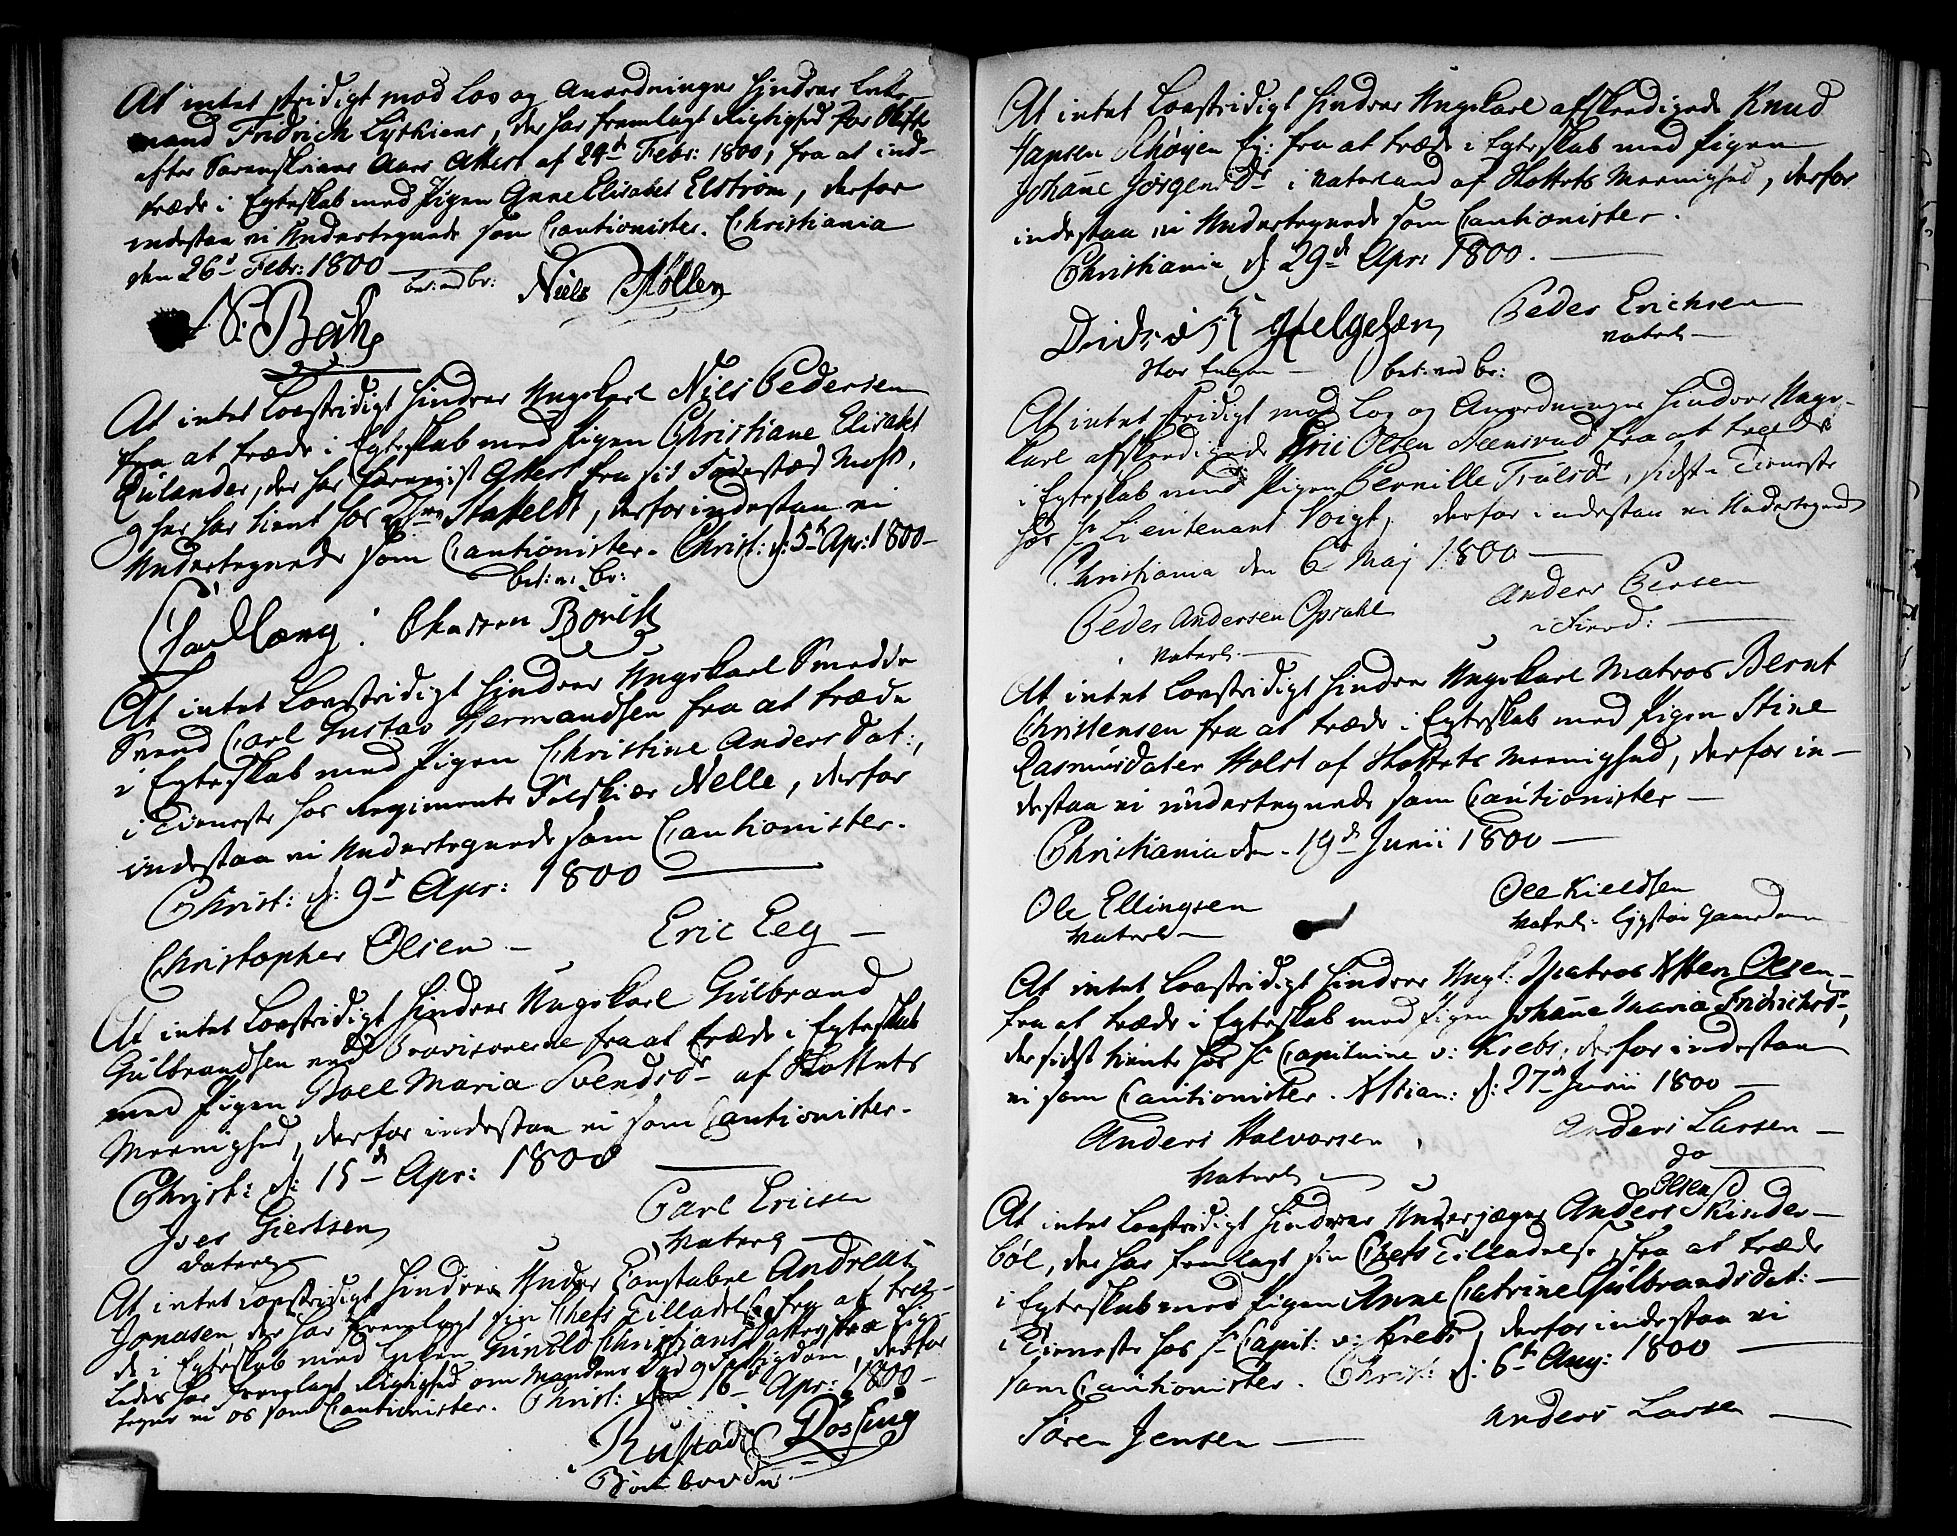 At intet stridigt mod Lov og Anordninger hindrer Enke-
mand Fridrich Lythiens, der har fremlagt Rigtighed for Skifte
efter Sorenskriver Aars Attest af 24d Febr: 1800, fra at ind-
træde i Egteskab med Pigen Anne Elisabet Elstrøm, derfor
indestaa vi Undertegnede som Cautionister. Christiania
den 26d Febr: 1800
bet: ved br:
Niels Møller
N: Bech
At intet Lovstridigt hindrer Ungekarl Niels Pedersen
fra at træde i Egteskab med Pigen Christiane Elisabet
Qulander, der har foreviist Attest fra sit Fødested Moss,
og her har tient hos Staffeldt, derfor indestaa vi
Undertegnede som Cautionister. Christ: d: 5t Apr: 1800
bet: v: br:
At intet Lovstridigt hindrer Ungekarl Smedde
Svend Carl Gustav Hermandsen fra at træde
i Egteskab med Pigen Christine Andersdat:,
i Tieneste hos Regiments Feltskiær Nelle, derfor
indestaa vi Undertegnede som Cautionister.
Christ: d: 9d Apr: 1800
Christopher Olsen
Eric Eeg
At intet Lovstridigt hindrer Ungekarl Gulbrand
Gulbrandsen ved Provisorerne fra at træde i Egteskab
med Pigen Boel Maria Svendsdr af Slottets
Meenighed, derfor indestaa vi som Cautionister.
Christ: d: 15d Apr: 1800
Iver Giertsen
Vaterl
Carl Ericsen
Vaterl
At intet Lovstridigt hindrer Under Constabel Andreas
Jonasen, der har fremlagt sin Chefs Tilladelse fra at træ-
de i Egteskab med Gunild Christians Datter, som lige-
ledes har fremlagt Rigtighed om Mandens Død og Fattigdom, derfor
tegner vi os som Cautionister. Christ: den 16d Apr: 1800
Rustad
Røsing
Bombarder
At intet Lovstridigt hindrer Ungekarl afskedigede Knud
Hansen Schøyen fra at træde i Egteskab med Pigen
Johañe Jørgensdr i Vaterland af Slottets Meenighed, derfor
indestaa vi Undertegnede som Cautionister.
Christiania d: 29d Apr: 1800.
Didrich Helgesen
Peder Erichsen
Vaterl
bet: ved br:
At intet stridigt mod Lov og Anordninger hindrer Unge-
karl afskedigede Eric Olsen Steensrud fra at træde
i Egteskab med Pigen Pernille Trulsdr, sidst i Tieneste
hos Hr Lieutenant Voigt, derfor indestaa vi Undertegnede
Christiania den 6t Maj 1800
Peder Andersen Opsahl
Vaterl.
Anders Persen
At intet Lovstridigt hindrer Ungekarl Matros Bernt
Christensen fra at træde i Egteskab med Pigen Stine
Rasmusdater Holst af Slottets Meenighed, derfor in-
destaa vi undertegnede som Cautionister
Christiania den 19d Junii 1800
Ole Ellingsen
Vaterl
Ole Kieldsen
Vaterl.
At intet Lovstridigt hindrer Ungk: Matros Olsen
fra at træde i Egteskab med Pigen Johañe Maria Fridrichsdr,
der sidst tiente hos Hr Capitaine v: Krebs, derfor indestaa
vi som Cautionister. Xstian: d: 27d Junii 1800
Anders Halvorsen
Vaterl
Anders Larsen
do
Olsen
At intet Lovstridigt hindrer Underjæger Anders Skinder-
bøl, der har fremlagt sin Chefs Tilladelse, fra at træde
i Egteskab med Pigen Anne Catrine Gulbrandsdat:
i Tieneste hos Hr Capit: v: Krebs, derfor indestaa vi
som Cautionister. Christ: d: 6t Aug: 1800
Søren Jensen
Anders Larsen